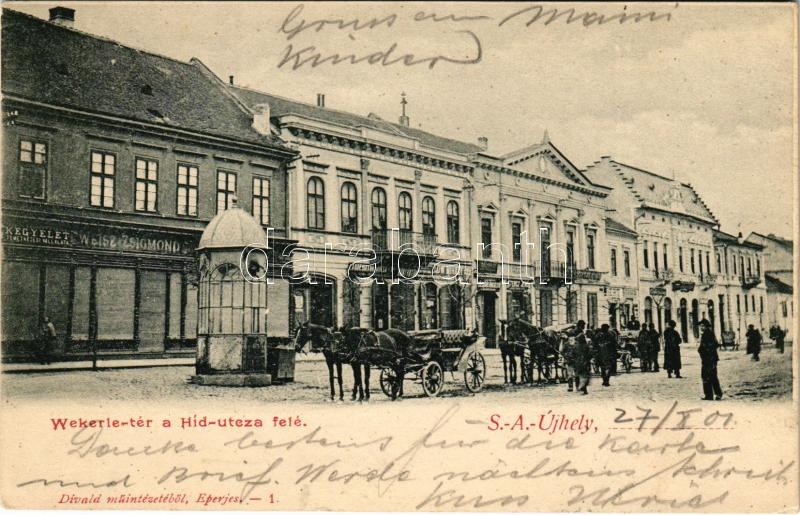 Gruss an Maini
Kinder
KEGYELET
WEISZ ZSIGMOND
darabanth.com
Wekerle-tér a Híd-utcza felé.
S.-A.-Újhely, 27/X 01
Danke bestens für die Karte
und Brief. Werde nächstens schreib
kuss
Divald műintézetéből, Eperjes. — 1.